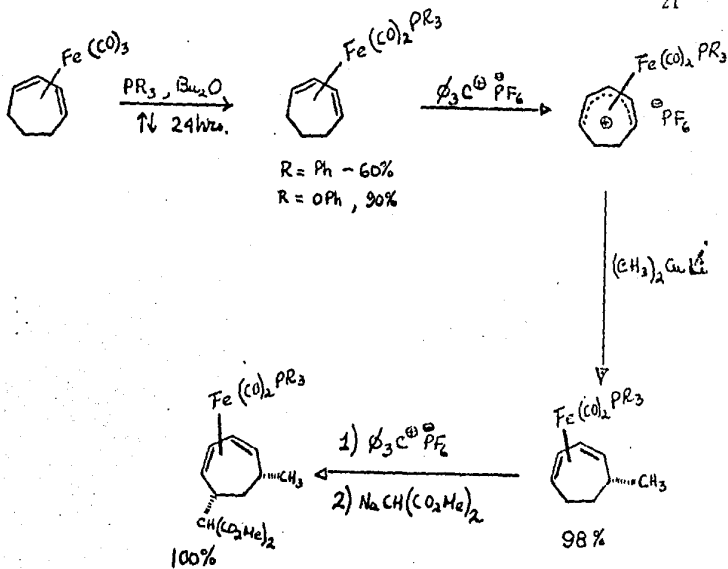 21
Fe(CO)₃
PR₃, Bu₂O
↑↓ 24hrs.
Fe(CO)₂PR₃
R = Ph - 60%
R = OPh, 90%
Ø₃C⊕ ⊖PF₆
Fe(CO)₂PR₃
⊕
⊖PF₆
(CH₃)₂Cu Li
Fe(CO)₂PR₃
CH₃
98%
1) Ø₃C⊕ ⊖PF₆
2) NaCH(CO₂Me)₂
Fe(CO)₂PR₃
CH₃
CH(CO₂Me)₂
100%